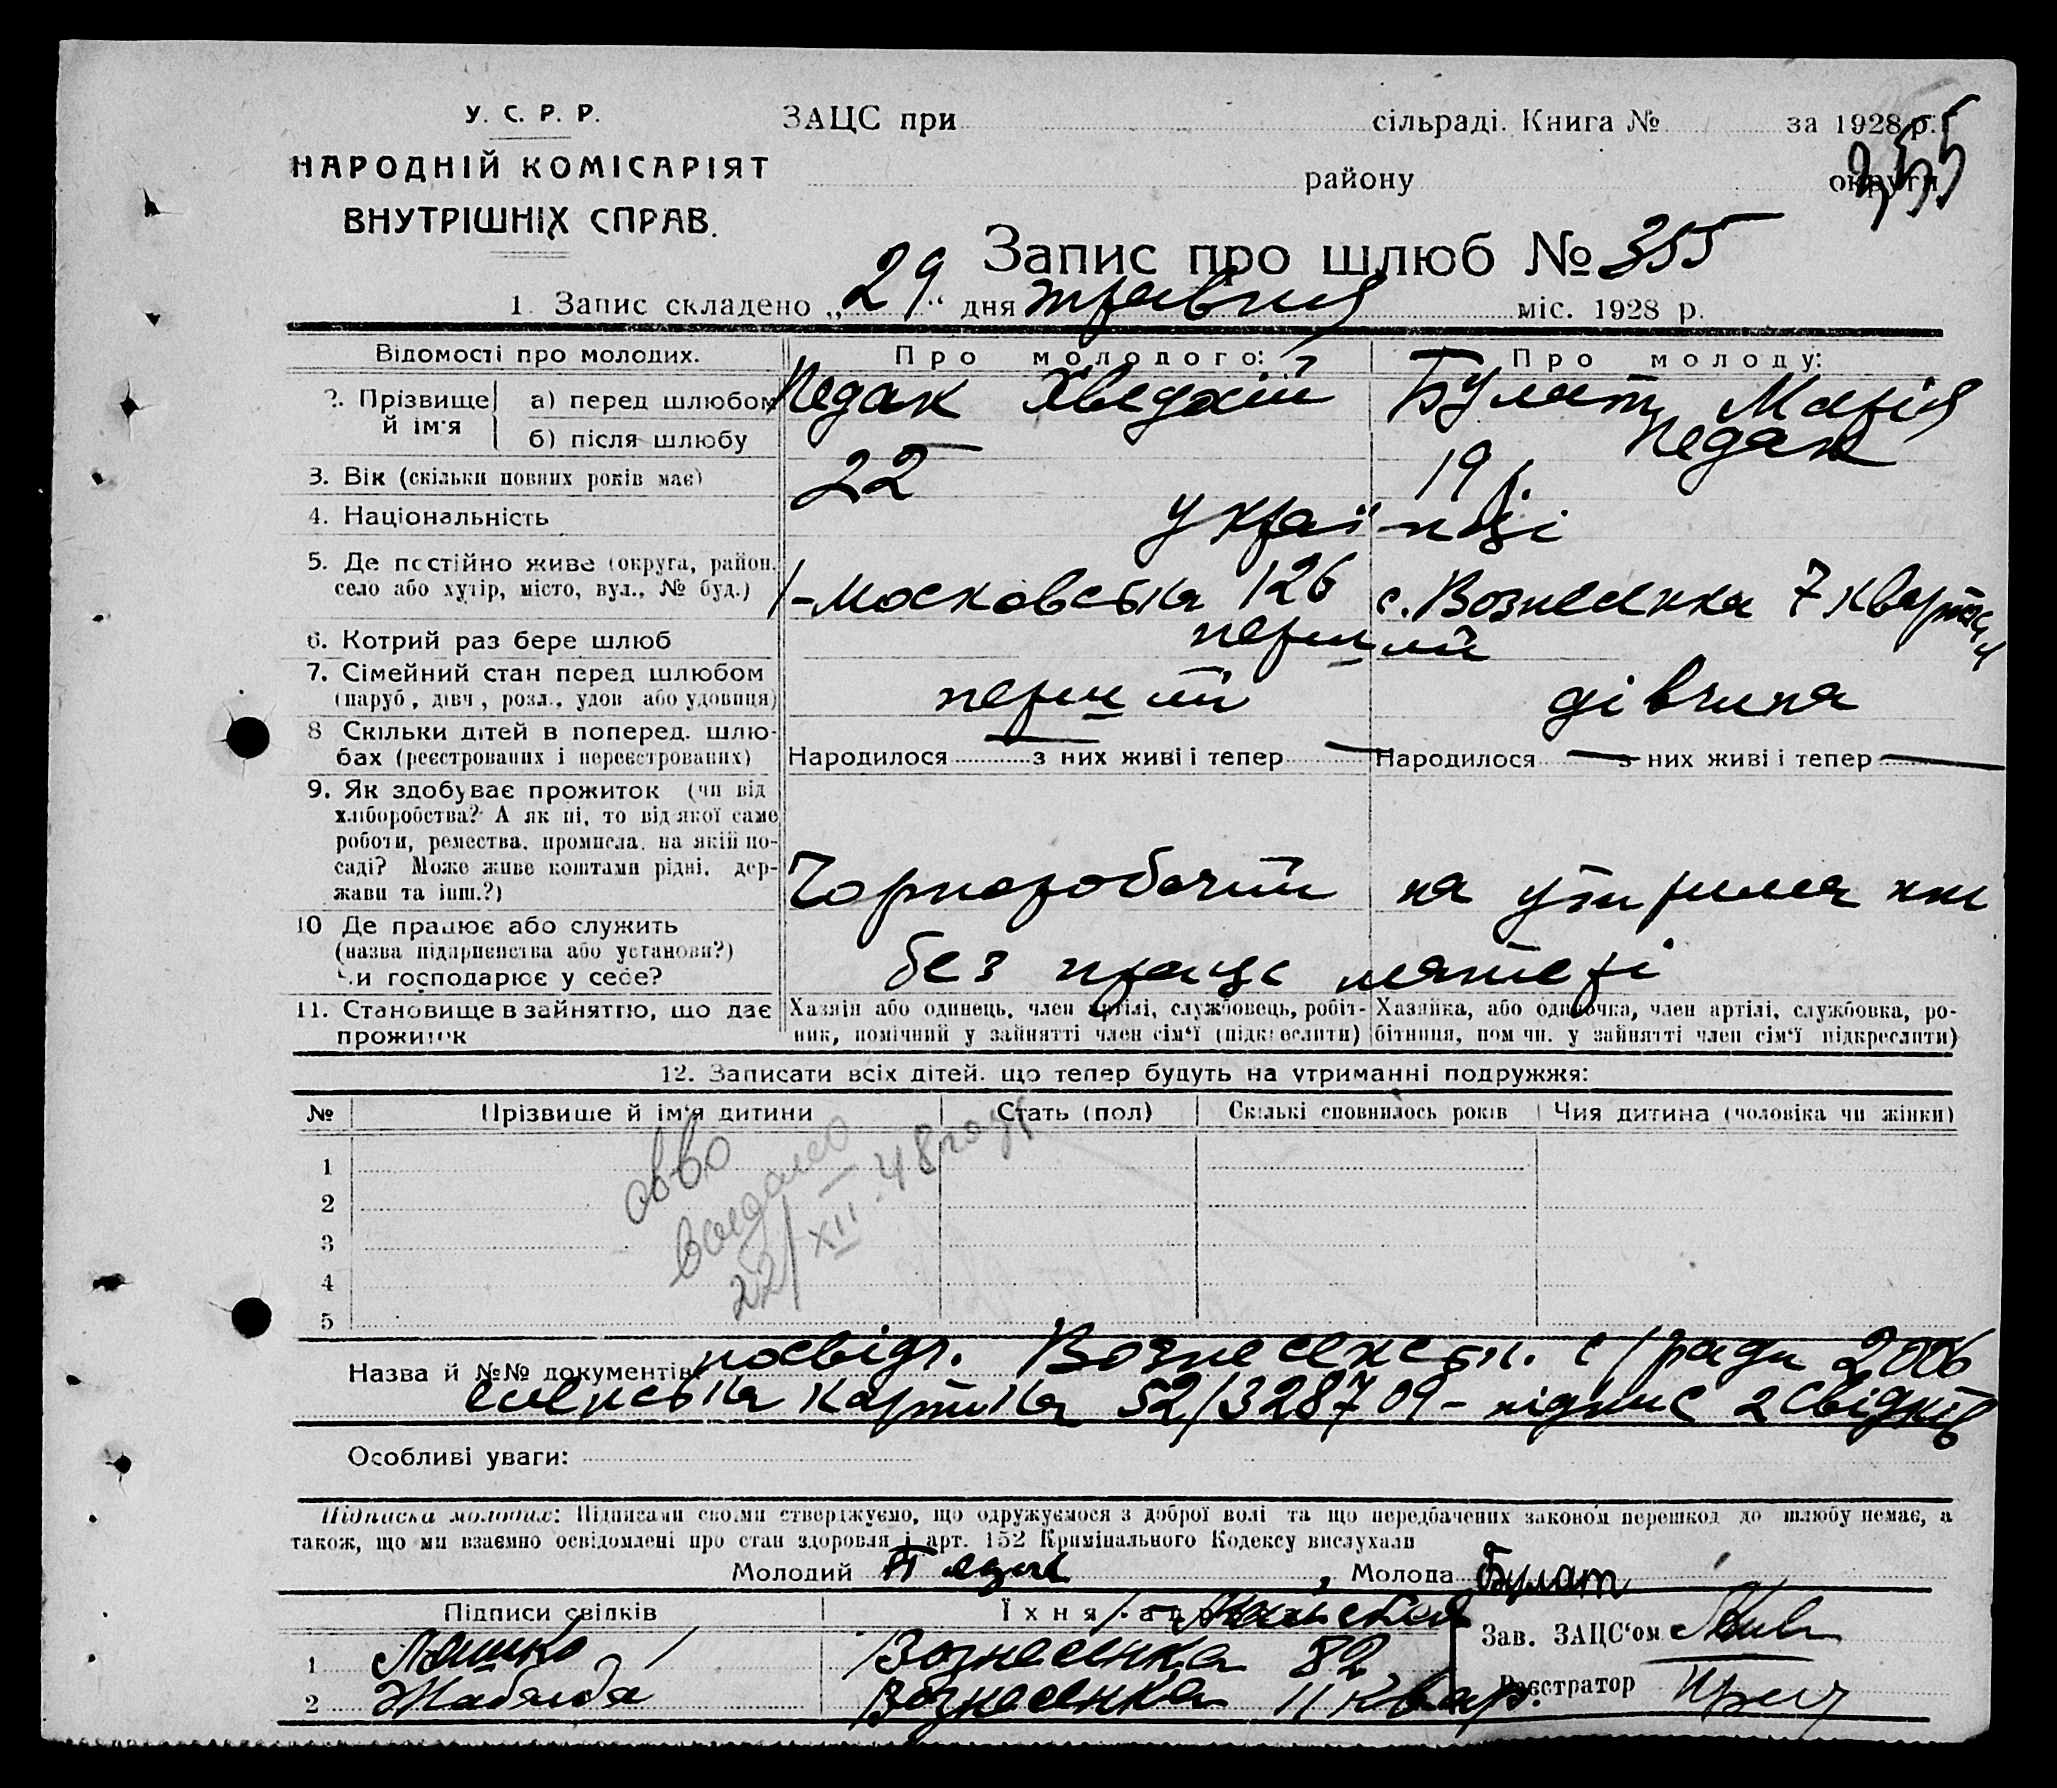 У. С. Р. Р.
НАРОДНІЙ КОМІСАРІЯТ
ВНУТРІШНІХ СПРАВ.
ЗАЦС при сільраді. Книга № за 1928 р.
району округи
355
Запис про шлюб № 355
1. Запис складено „29“ дня травня міс. 1928 р.
Відомості про молодих. Про молодого: Про молоду:
2. Прізвище й ім'я а) перед шлюбом Педак Хведхій Булат Марія
б) після шлюбу Педак
3. Вік (скільки повних років має) 22 19 р.
4. Національність українці
5. Де постійно живе (округа, район, село або хутір, місто, вул., № буд.) 1-Московська 126 с. Вознесенка 7 квартал
6. Котрий раз бере шлюб перший
7. Сімейний стан перед шлюбом (паруб, дівч, розл., удов або удовиця) перший дівчина
8 Скільки дітей в поперед. шлюбах (реєстрованих і нереєстрованих) Народилося з них живі і тепер Народилося з них живі і тепер
9. Як здобуває прожиток (чи від хліборобства? А як ні, то від якої саме роботи, ремества, промисла, на якій посаді? Може живе коштами рідні, держави та інш.?) Чорноробочий на утриманні
10 Де працює або служить (назва підприєпства або установи?) Чи господарює у себе? без праці матері
11. Становище в зайняттю, що дає прожиток Хазяїн або одинець, член артілі, службовець, робітник, помічний у зайнятті член сім'ї (підкреслити) Хазяйка, або одиночка, член артілі, службовка, робітниця, помічн. у зайнятті член сім'ї підкреслити)
12. Записати всіх дітей, що тепер будуть на утриманні подружжя:
№ Прізвище й ім'я дитини Стать (пол) Скількі сповнилось років Чия дитина (чоловіка чи жінки)
1
2
3
4
5
22/XII 48 году
Назва й №№ документів посвідч. Вознесенськ. с/ради 2006
членська картка 52/328709 - підпис 2 свідків
Особливі уваги:
Підписка молодих: Підписами своїми стверджуємо, що одружуємося з доброї волі та що передбачених законом перешкод до шлюбу немає, а
також, що ми взаємно освідомлені про стан здоровля і арт. 152 Кримінального Кодексу вислухали
Молодий Педак, Молода Булат
Підписи свідків Їхня адреса
1 Ляшко Вознесенка 82
2 Жабяєба Вознесенка 11 квар.
Зав. ЗАЦС'ом
Реєстратор